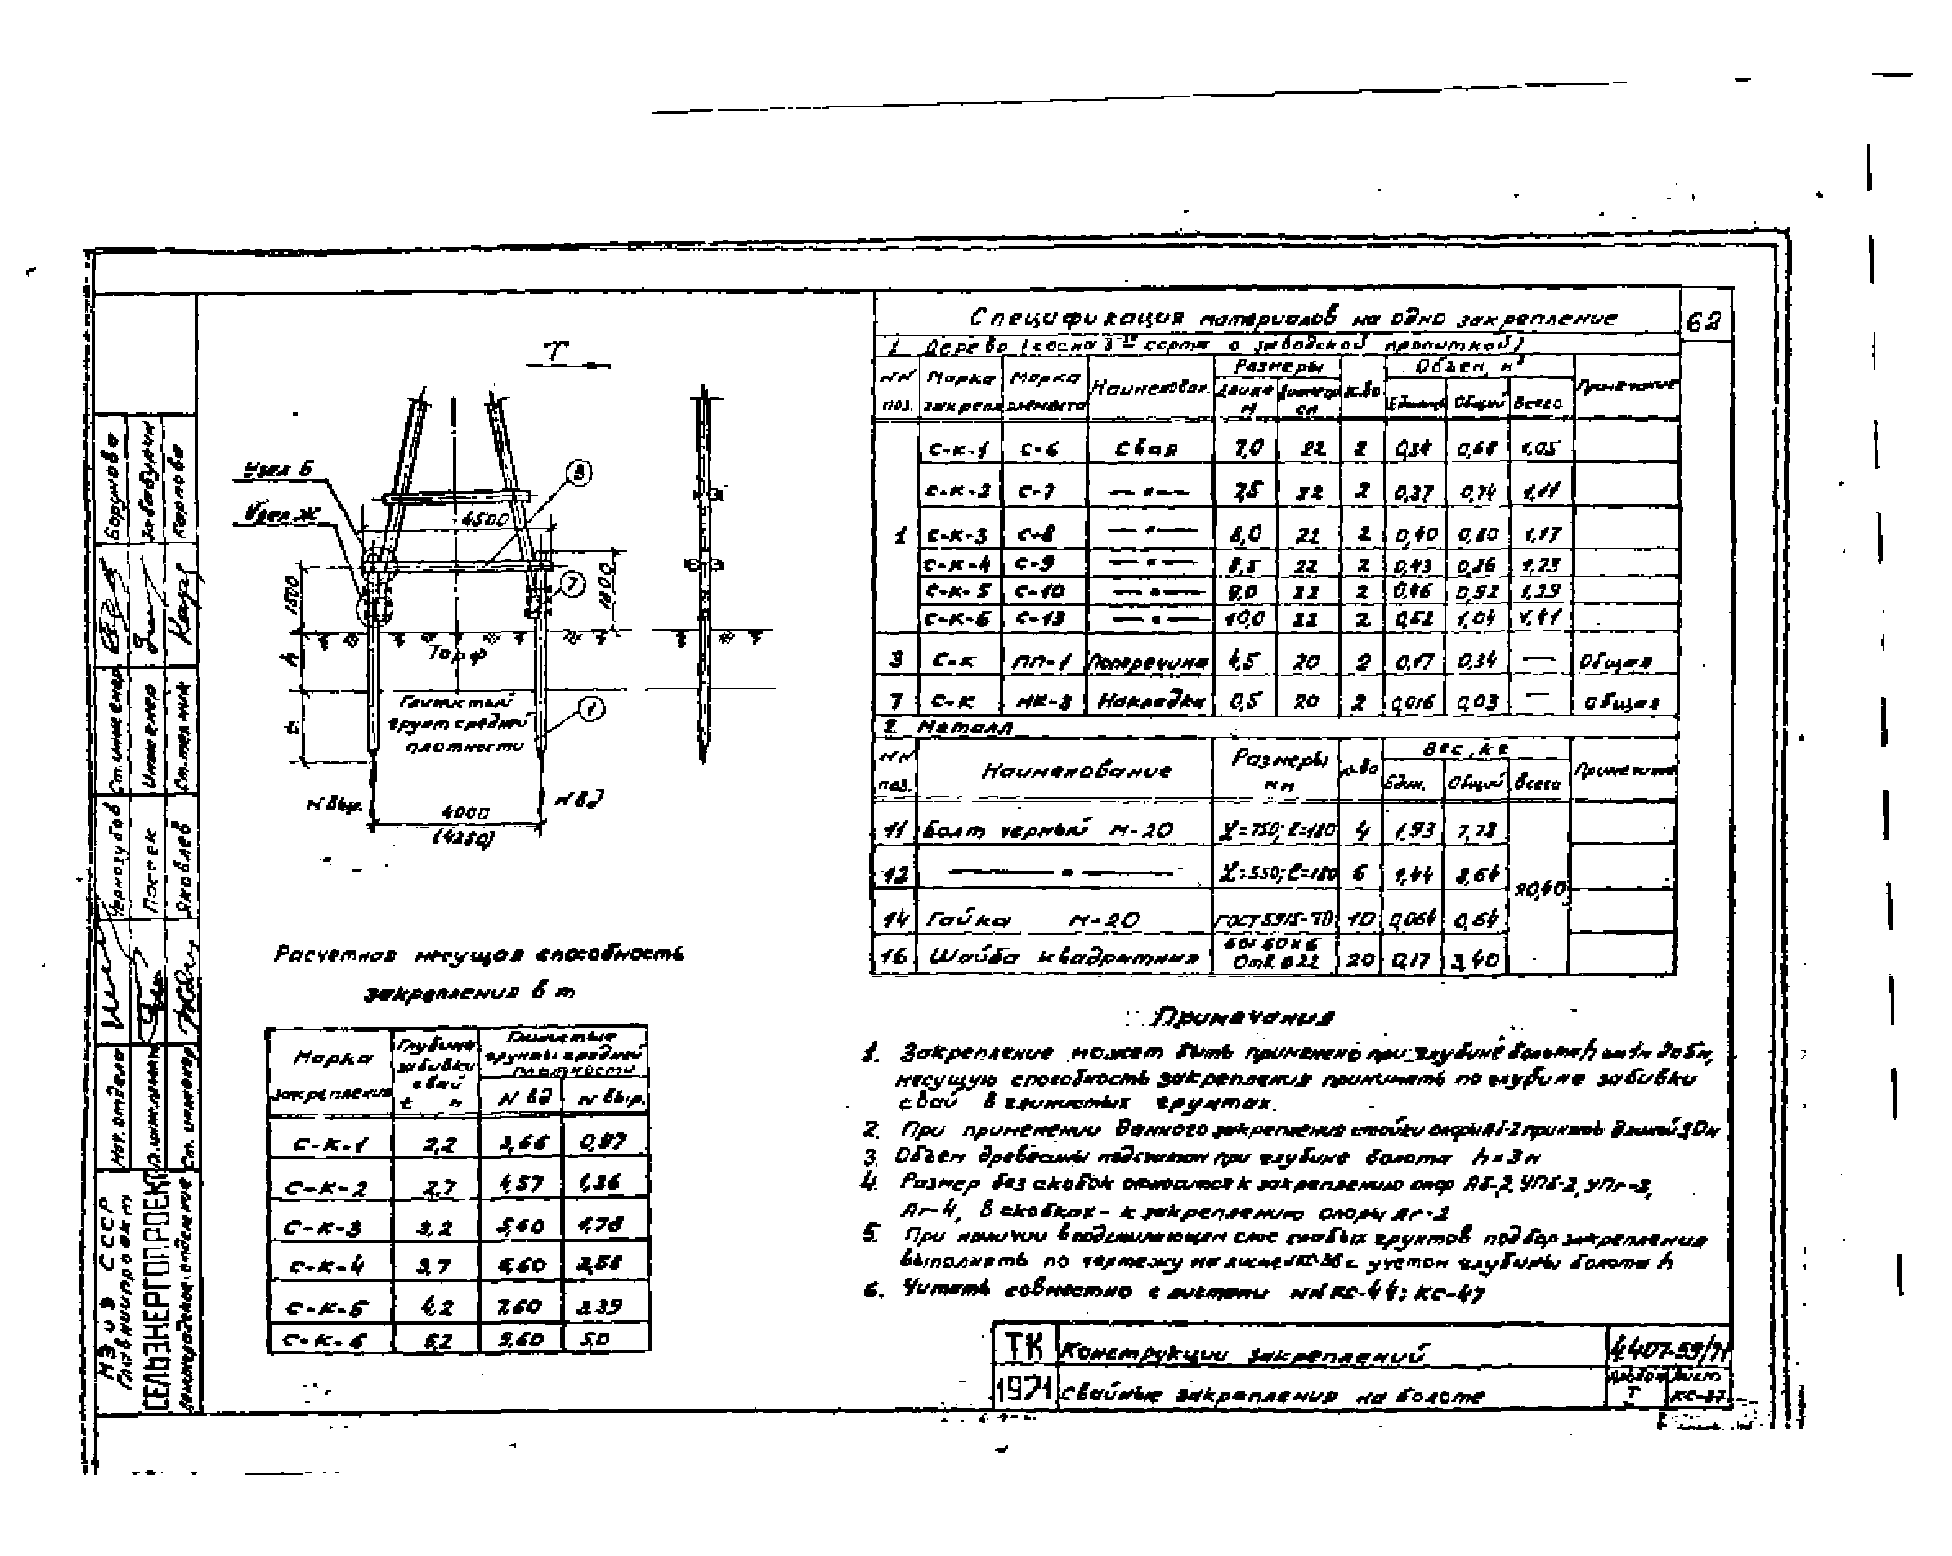 62
Т
Узел Б
Узел Ж
8
4500
7
1500
1800
h
Торф
Глинистый
грунт средней
плотности
t
1
N выр.
N вд
4000
(4250)
Расчетная несущая способность
закрепления в т
Марка закрепления | Глубина забивки свай t м | Глинистые грунты средней плотности
N вд | N выр.
С-К-1 | 2,2 | 3,66 | 0,97
С-К-2 | 2,7 | 4,57 | 1,36
С-К-3 | 3,2 | 5,60 | 1,78
С-К-4 | 3,7 | 6,60 | 2,58
С-К-5 | 4,2 | 7,60 | 3,39
С-К-6 | 5,2 | 9,60 | 5,0
Спецификация материалов на одно закрепление
1. Дерево (сосна 3го сорта с заводской пропиткой)
NN поз. | Марка закрепл. | Марка элемента | Наименован. | Размеры | К-во | Объем, м³ | Примечание
Длина м | Диаметр см | Единицы | Общий | Всего
1 | С-К-1 | С-6 | Свая | 7,0 | 22 | 2 | 0,34 | 0,68 | 1,05
С-К-2 | С-7 | —"— | 7,5 | 22 | 2 | 0,37 | 0,74 | 1,11
С-К-3 | С-8 | —"— | 8,0 | 22 | 2 | 0,40 | 0,80 | 1,17
С-К-4 | С-9 | —"— | 8,5 | 22 | 2 | 0,43 | 0,86 | 1,23
С-К-5 | С-10 | —"— | 9,0 | 22 | 2 | 0,46 | 0,92 | 1,29
С-К-6 | С-12 | —"— | 10,0 | 22 | 2 | 0,52 | 1,04 | 1,41
С-К | ПП-1 | Поперечина | 4,5 | 20 | 2 | 0,17 | 0,34 | — | Общая
7 | С-К | НК-3 | Накладка | 0,5 | 20 | 2 | 0,016 | 0,03 | — | Общая
2. Металл
NN поз. | Наименование | Размеры мм | к-во | Вес, кг | Примечание
Един. | Общий | Всего
11 | Болт черный М-20 | L=750; ℓ=180 | 4 | 1,93 | 7,72
12 | —"— | L=550; ℓ=180 | 6 | 1,44 | 8,64 | 20,40
14 | Гайка М-20 | ГОСТ 5915-70 | 10 | 0,064 | 0,64
16 | Шайба квадратная | 60х60х6 Отв. ø22 | 20 | 0,17 | 3,40
Примечания
1. Закрепление может быть применено при глубине болота h от 1м до 5м,
несущую способность закрепления принимать по глубине забивки
свай в глинистых грунтах.
2. При применении данного закрепления стойки опоры АБ-2 принять длиной
3. Объем древесины подсчитан при глубине болота h=3м
4. Размер без скобок относится к закреплению опор АБ-2, УПБ-2, УПг-3,
Аг-4, в скобках - к закреплению опоры Аг-2
5. При наличии в подстилающем слое слабых грунтов подбор закрепления
выполнять по чертежу на листе с учетом глубины болота h
6. Читать совместно с листами NN КС-44; КС-47
ТК | Конструкции закреплений | 4.407-59/71
1971 | Свайные закрепления на болоте | Альбом I | Лист КС-37
МЭ и Э СССР
Главниипроект
СЕЛЬЭНЕРГОПРОЕКТ
Нач. отдела
Ст. инженер
Чернозубов
Постек
Яковлев
Ст. инженер
Инженер
Ст. техник
Забабурин
Карлова